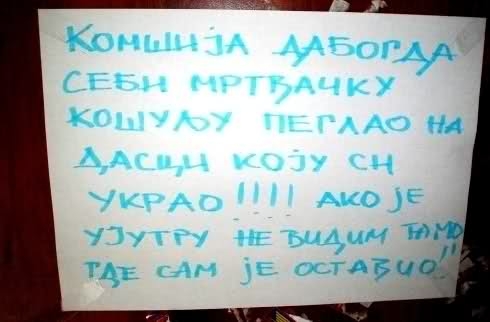 КОМШИЈА ДАБОГДА
СЕБИ МРТВАЧКУ
КОШУЉУ ПЕГЛАО НА
ДАСЦИ КОЈУ СИ
УКРАО!!!! АКО ЈЕ
УЈУТРУ НЕ ВИДИМ ТАМО
ГДЕ САМ ЈЕ ОСТАВИО!!